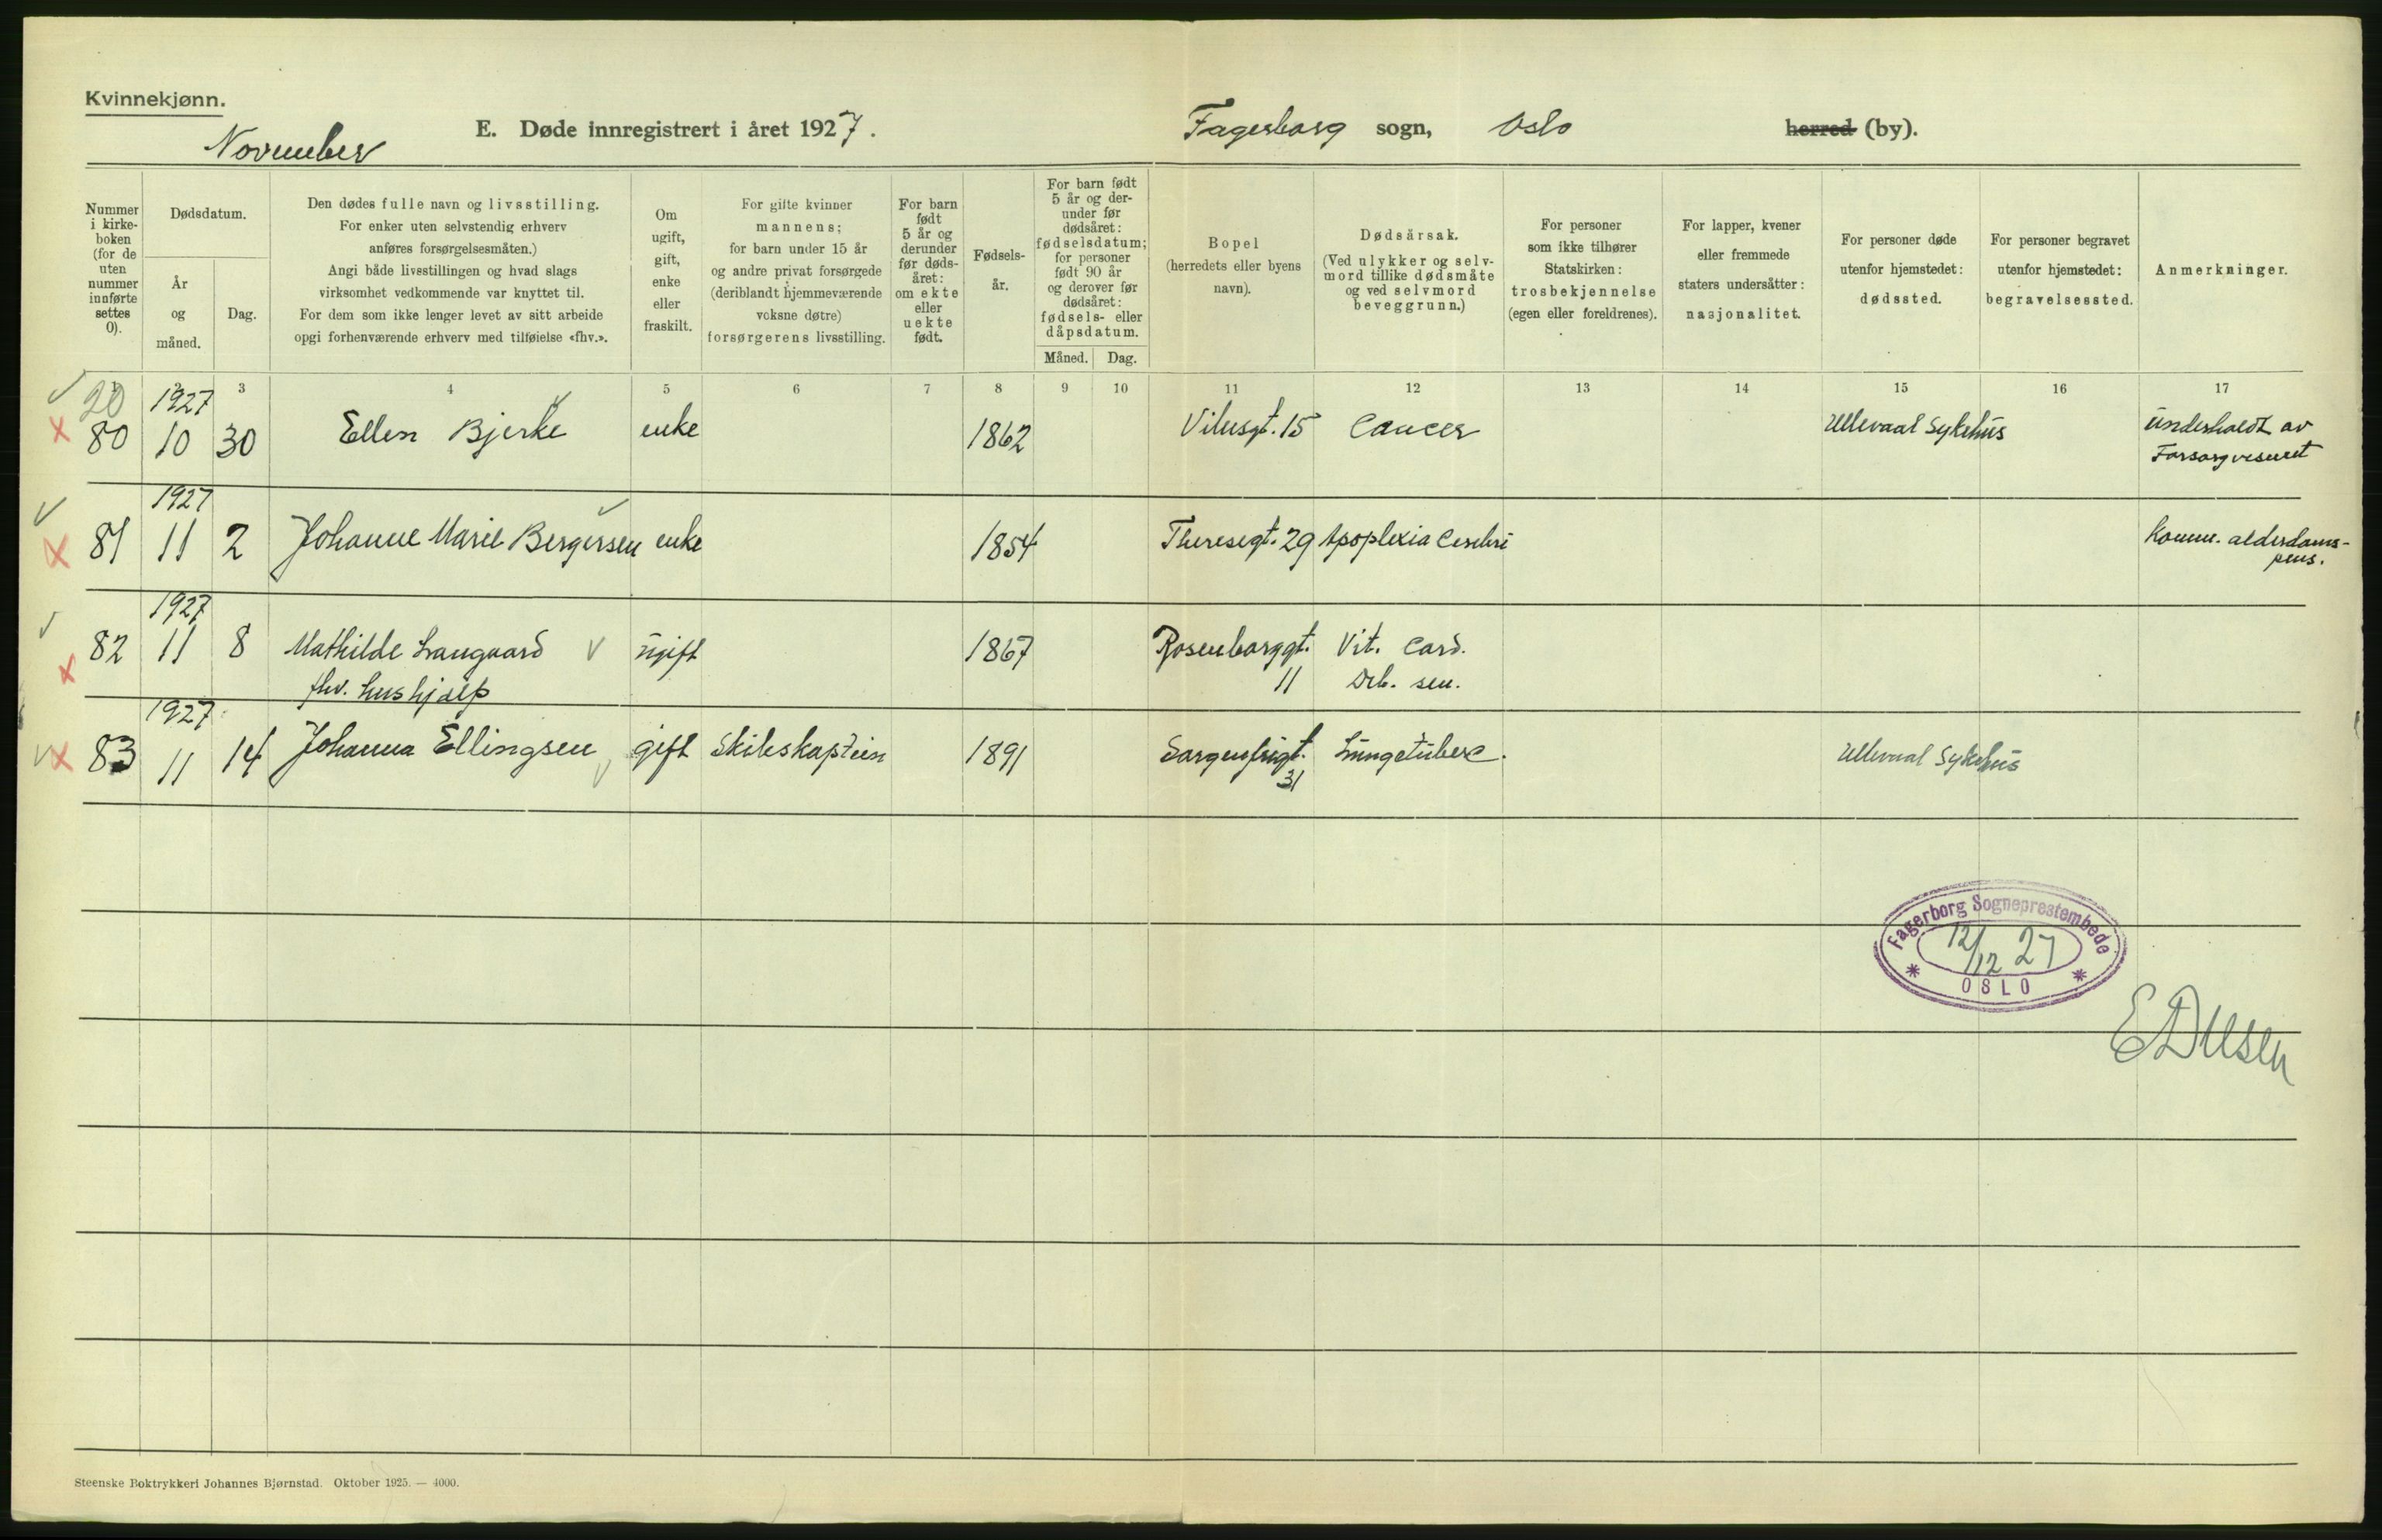 Kvinnekjønn.
November
E. Døde innregistrert i året 1927.
Fagerborg sogn, Oslo herred (by).
Nummer
i kirke-
boken
(for de
uten
nummer
innførte
settes
0).
Dødsdatum.
År
og
måned.
Dag.
Den dødes fulle navn og livsstilling.
For enker uten selvstendig erhverv
anføres forsørgelsesmåten.)
Angi både livsstillingen og hvad slags
virksomhet vedkommende var knyttet til.
For dem som ikke lenger levet av sitt arbeide
opgi forhenværende erhverv med tilføielse «fhv.».
Om
ugift,
gift,
enke
eller
fraskilt.
For gifte kvinner
mannens;
for barn under 15 år
og andre privat forsørgede
(deriblandt hjemmeværende
voksne døtre)
forsørgerens livsstilling.
For barn
født
5 år og
derunder
før døds-
året:
om ekte
eller
uekte
født.
Fødsels-
år.
For barn født
5 år og der-
under før
dødsåret:
fødselsdatum;
for personer
født 90 år
og derover før
dødsåret:
fødsels- eller
dåpsdatum.
Måned. Dag.
Bopel
(herredets eller byens
navn).
Dødsårsak.
(Ved ulykker og selv-
mord tillike dødsmåte
og ved selvmord
beveggrunn.)
For personer
som ikke tilhører
Statskirken:
trosbekjennelse
(egen eller foreldrenes).
For lapper, kvener
eller fremmede
staters undersåtter:
nasjonalitet.
For personer døde
utenfor hjemstedet:
dødssted.
For personer begravet
utenfor hjemstedet:
begravelsessted.
Anmerkninger.
3 4 5 6 7 8 9 10 11 12 13 14 15 16 17
20 1927
80 10 30 Ellen Bjerke enke 1862 Vibesgt. 15 Cancer Ullevaal Sykehus Underholdt av
Forsorgvesenet
1927
81 11 2 Johanne Marie Bergersen enke 1854 Theresegt. 29 Apoplexia Cerebri Komm. alderdoms-
pens.
1927
82 11 8 Mathilde Langaard ugift 1867 Rosenborggt. Vit. Card.
fhv. hushjælp 11 Deb. sen.
1927
83 11 14 Johanna Ellingsen gift Skibskaptein 1891 Sorgenfrigt. Lungetuberc.
31
Ullevaal Sykehus
Fagerborg Sogneprestembede
12/12 27
OSLO
Steenske Boktrykkeri Johannes Bjørnstad. Oktober 1925. — 4000.